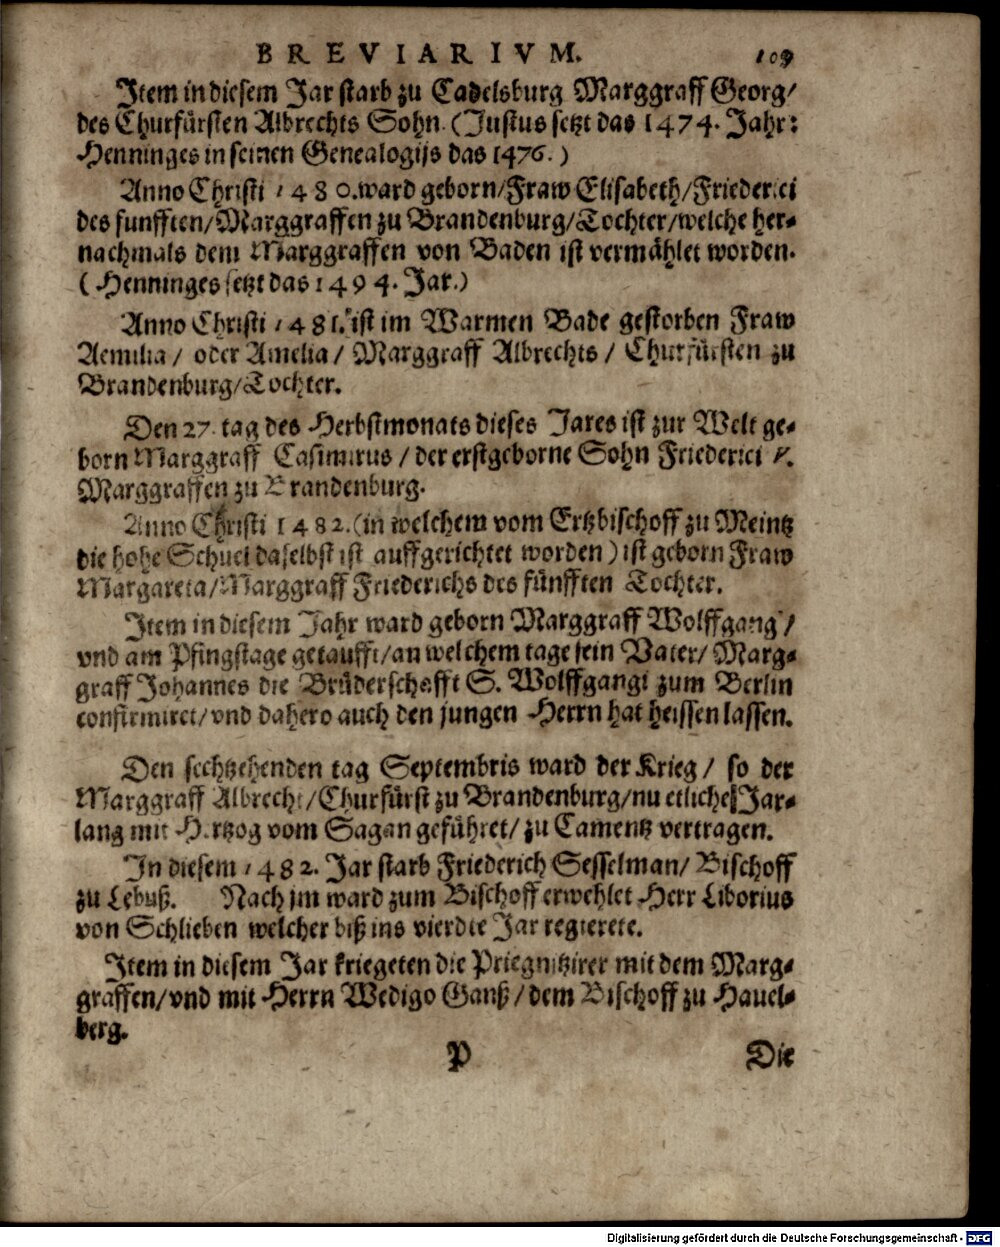 BREVIARIVM. 109
Item in diesem Jar starb zu Cadelsburg Marggraff Georg/
des Churfürsten Albrechts Sohn. (Justus setzt das 1474. Jahr:
Henninges in seinen Genealogijs das 1476.)
Anno Christi 1480. ward geborn/Fraw Elisabeth/Friederici
des funfften/Marggraffen zu Brandenburg/Tochter/welche her-
nachmals dem Marggraffen von Baden ist vermählet worden.
(Henninges setzt das 1494. Jar.)
Anno Christi 1481. ist im Warmen Bade gestorben Fraw
Aemilia/ oder Amelia/ Marggraff Albrechts/ Churfürsten zu
Brandenburg/Tochter.
Den 27. tag des Herbstmonats dieses Jares ist zur Welt ge-
born Marggraff Casimirus/ der erstgeborne Sohn Friederici V.
Marggraffen zu Brandenburg.
Anno Christi 1482. (in welchem vom Ertzbischoff zu Meintz
die hohe Schuel daselbst ist auffgerichtet worden) ist geborn Fraw
Margareta/Marggraff Friederichs des fünfften Tochter.
Item in diesem Jahr ward geborn Marggraff Wolffgang/
vnd am Pfingstage getaufft/an welchem tage sein Vater/ Marg-
graff Johannes die Brüderschafft S. Wolffgangi zum Berlin
confirmiret/vnd dahero auch den jungen Herrn hat heissen lassen.
Den sechtzehenden tag Septembris ward der Krieg/ so der
Marggraff Albrecht/Churfürst zu Brandenburg/nu etliche Jar-
lang mit Hertzog vom Sagan geführet/ zu Camentz vertragen.
In diesem 1482. Jar starb Friederich Sesselman/ Bischoff
zu Lebuß. Nach jm ward zum Bischoff erwehlet Herr Liborius
von Schlieben welcher biß ins vierdte Jar regierete.
Item in diesem Jar kriegeten die Priegnitzirer mit dem Marg-
graffen/vnd mit Herrn Wedigo Ganß/dem Bischoff zu Hauel-
berg.
P Die
Digitalisierung gefördert durch die Deutsche Forschungsgemeinschaft - DFG